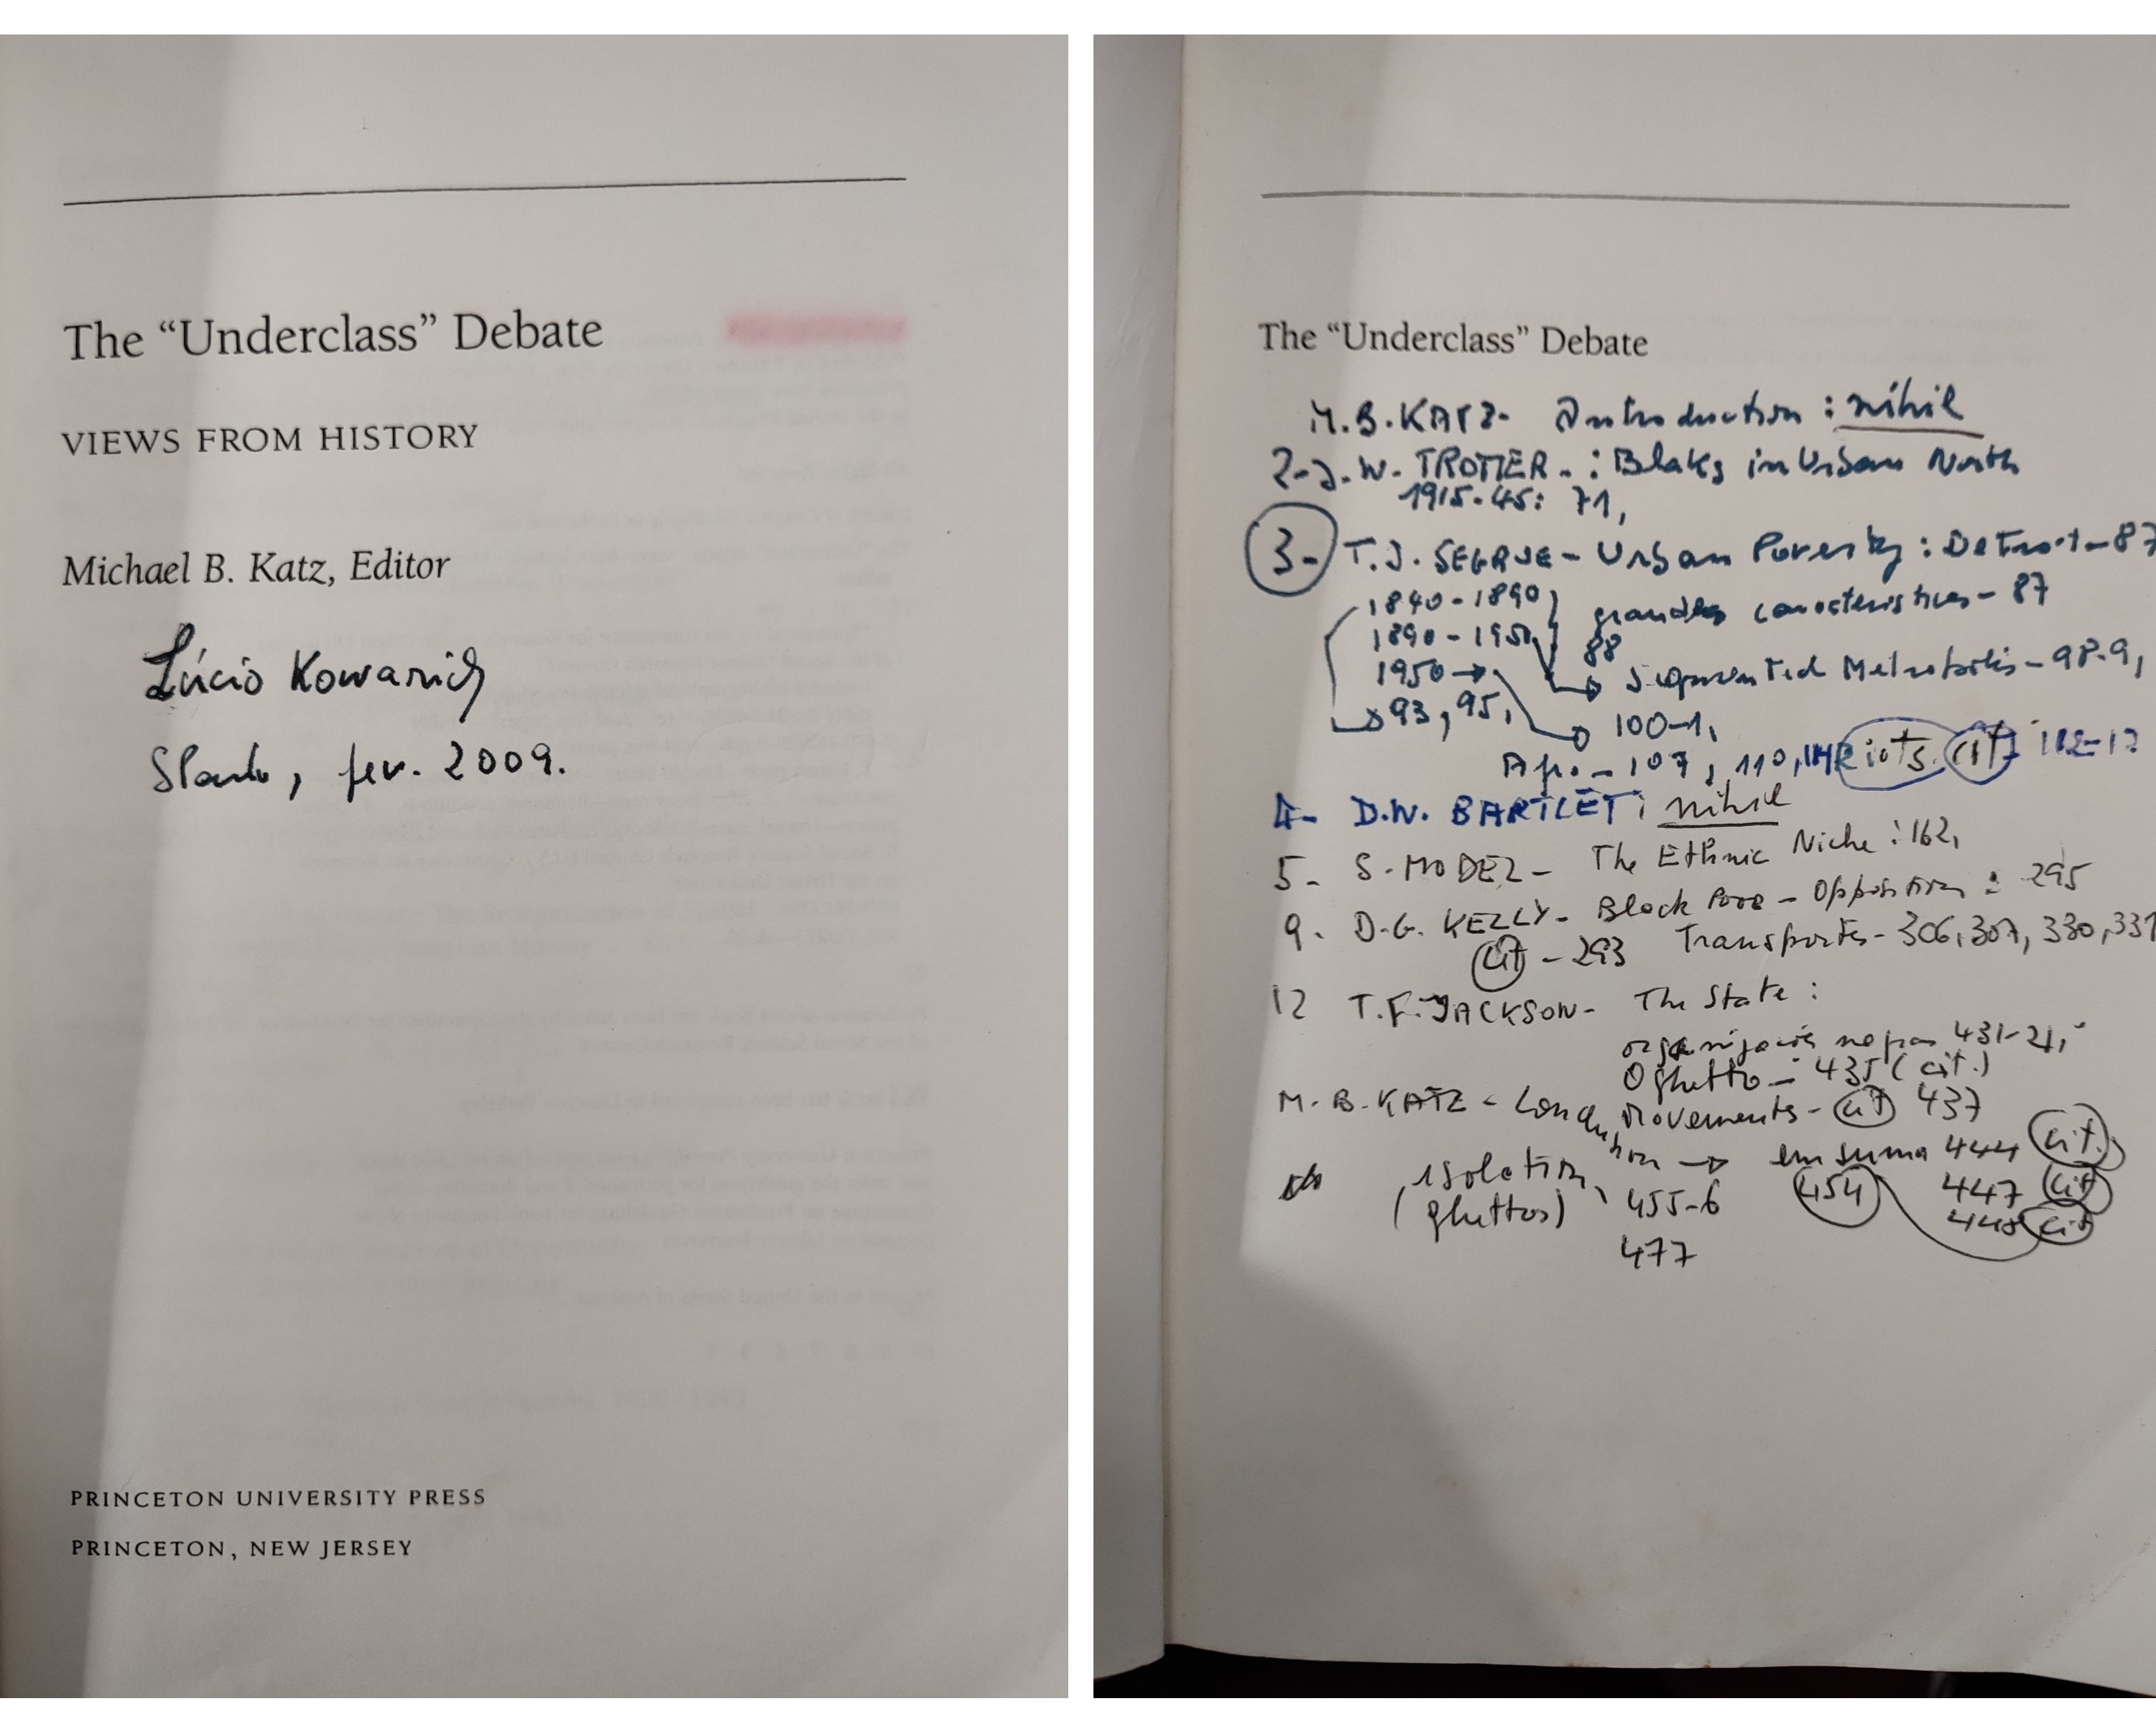 The “Underclass” Debate
VIEWS FROM HISTORY
Michael B. Katz, Editor
Lúcio Kowarick
SPaulo, fev. 2009.
PRINCETON UNIVERSITY PRESS
PRINCETON, NEW JERSEY
The “Underclass” Debate
M.B. KATZ- Introduction: nihil
2- J.W. TROTTER.: Blaks in Urban North
1915-45: 71,
3- T.J. SEGRUE - Urban Poverty: Detroit - 87
1840-1890 grandes caracteristicas - 87
1890-1950 88
1950 → Segmented Metropolis - 98-9,
93, 95, 100-1,
Afro - 107, 110, Riots cit
4- D.W. BARTLET: nihil
5- S. MODEL - The Ethnic Niche: 162,
9. D.G. KELLY- Black Poor - Opposition: 295
cit - 293 Transportes - 306, 307, 330, 331
12 T.F. JACKSON- The State:
431-2,
O ghetto - 435 (cit.)
Movements - cit 437
M.B. KATZ - → em suma 444 cit.
isolation, 455-6 454 447 cit
(ghettos) 448 cit
477